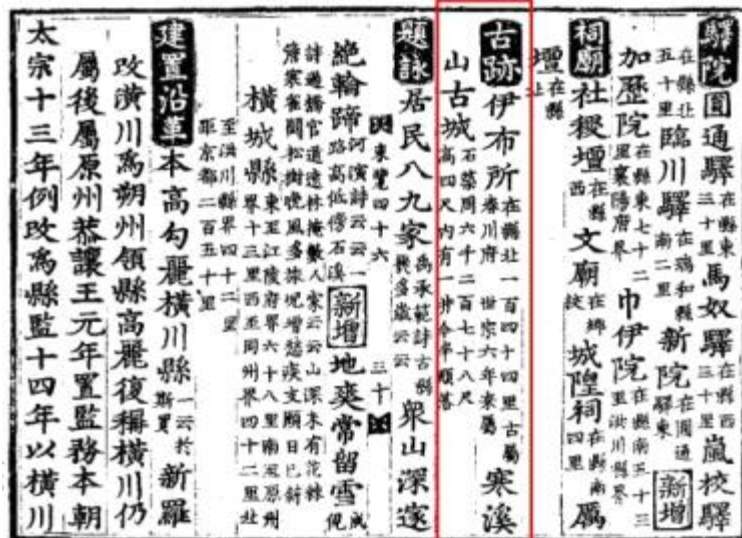 驛院圓通驛在縣東三十里馬奴驛在縣西三十里嵐校驛
在縣北五十里臨川驛在瑞和縣南二里新院在圓通驛東新增
加歷院在縣東七十二里襄陽府界巾伊院在縣南五十三里洪川縣界
祠廟社稷壇在縣西文廟在鄉校城隍祠在縣南四里厲
壇在縣北
古跡伊布所在縣北一百四十四里古屬春川府世宗六年來屬寒溪
山古城石築周六千二百七十八尺高四尺內有一井今半頹落
題詠居民八九家禹承範詩古縣幾多歲云云衆山深邃
東覽四十六 三十
絶輪蹄河演詩云云一路高低傍石溪新增地爽常留雪成俔
詩過橋官道遠林掩數人家云云山深未有花棘簷寒雀鬧松樹晚風多增愁疾支日已斜
橫城縣東至江陵府界六十八里南至原州界十三里西至同州界四十二里北
至洪川縣界四十二里距京都二百五十里
建置沿革本高句麗橫川縣一云於斯買新羅
改潢川爲朔州領縣高麗復稱橫川仍
屬後屬原州恭讓王元年置監務本朝
太宗十三年例改爲縣監十四年以橫川